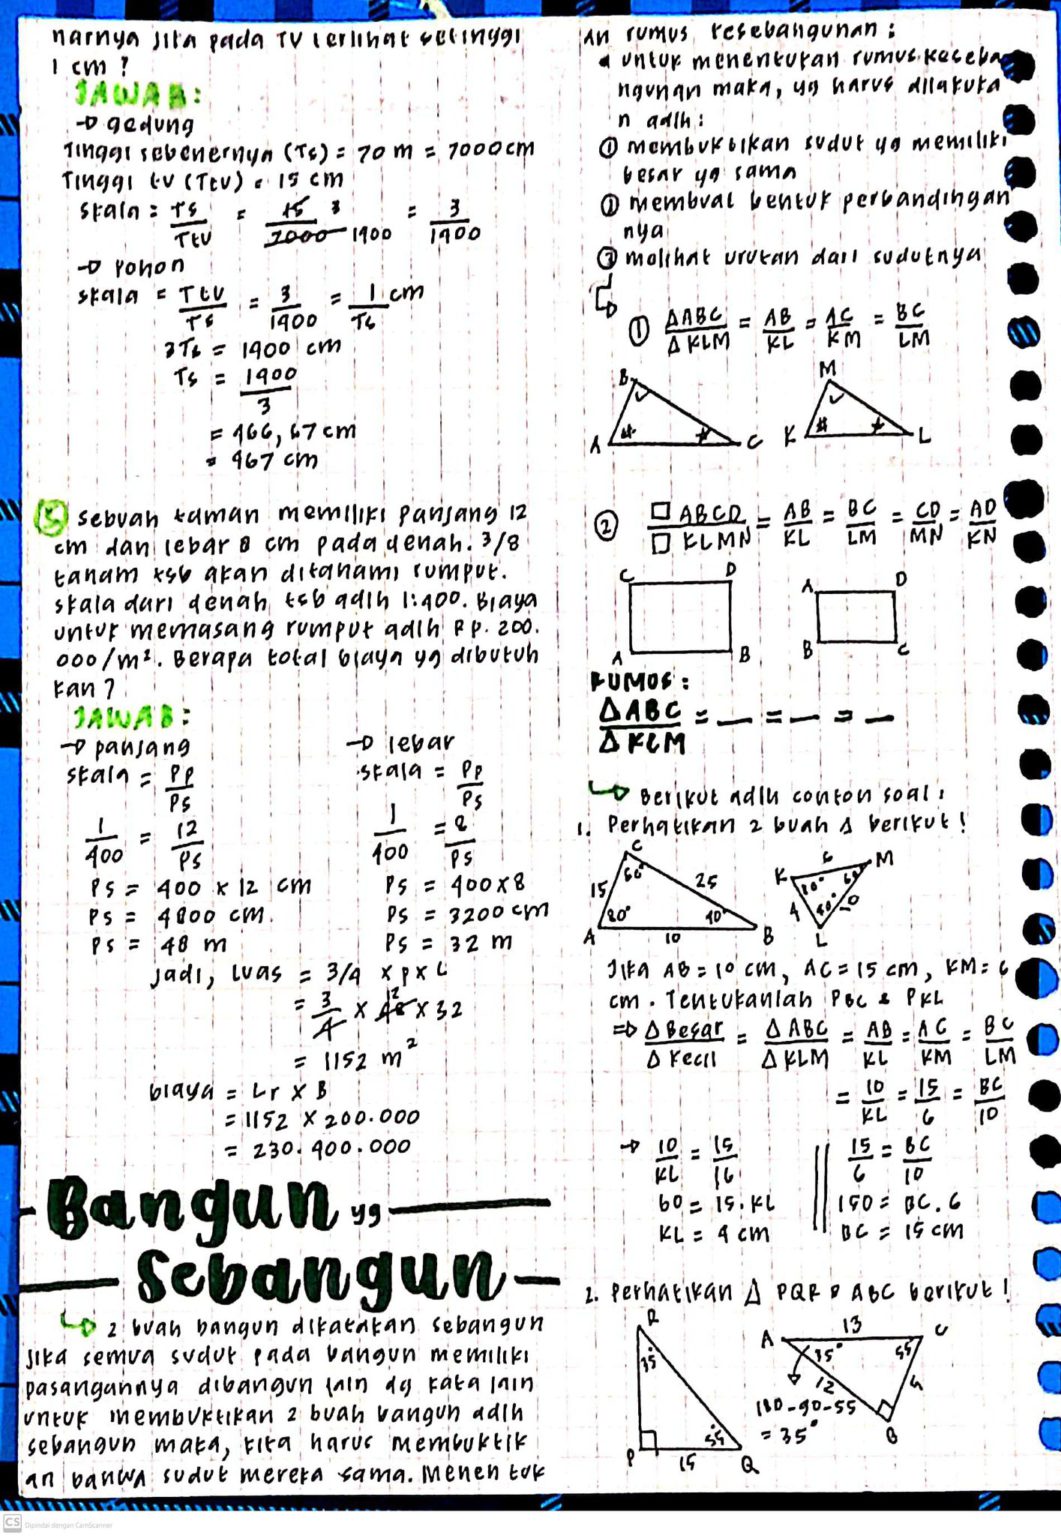 narnya jika pada TV terlihat setinggi
1 cm ?
JAWAB:
→ gedung
Tinggi sebenernya (Ts) = 70 m = 7000 cm
Tinggi tv (Ttv) = 15 cm
skala = Ts/Ttv = 15 3/7000 1400 = 3/1400
→ pohon
skala = Ttv/Ts = 3/1400 = 1/Ts cm
3Ts = 1400 cm
Ts = 1400/3
= 466,67 cm
= 467 cm
(5) sebuah taman memiliki panjang 12
cm dan lebar 8 cm pada denah. 3/8
tanam tsb akan ditanami rumput.
skala dari denah tsb adlh 1:400. Biaya
untuk memasang rumput adlh Rp. 200.
000/m². Berapa total biaya yg dibutuh
kan ?
JAWAB:
→ panjang
skala = Pp/Ps
1/400 = 12/Ps
Ps = 400 x 12 cm
Ps = 4800 cm.
Ps = 48 m
→ lebar
skala = Pp/Ps
1/400 = 8/Ps
Ps = 400x8
Ps = 3200 cm
Ps = 32 m
Jadi, Luas = 3/4 x p x L
= 3/4 x 48 12 x 32
= 1152 m²
biaya = Lr x B
= 1152 x 200.000
= 230.400.000
Bangun yg
Sebangun
↳ 2 buah bangun dikatakan sebangun
jika semua sudut pada bangun memiliki
pasangannya dibangun lain dg kata lain
untuk membuktikan 2 buah bangun adlh
sebangun maka, kita harus membuktik
an bahwa sudut mereka sama. Menentuk
an rumus kesebangunan :
• untuk menentukan rumus keseba
ngunan maka, yg harus dilakuka
n adlh :
① membuktikan sudut yg memiliki
besar yg sama
② membuat bentuk perbandingan
nya
③ melihat urutan dari sudutnya
① ΔABC/ΔKLM = AB/KL = AC/KM = BC/LM
B
A
C
M
K
L
② □ ABCD/□ KLMN = AB/KL = BC/LM = CD/MN = AD/KN
C D
A B
A D
B C
RUMUS :
ΔABC/ΔKLM = — = — = —
↳ Berikut adlh contoh soal :
1. Perhatikan 2 buah Δ berikut !
C
60°
15
25
80°
40°
A
10
B
K
6
M
80°
60
4
40°
10
L
Jika AB = 10 cm, AC = 15 cm, KM = 6
cm. Tentukanlah PBC & PKL
⇒ Δ Besar/Δ Kecil = Δ ABC/Δ KLM = AB/KL = AC/KM = BC/LM
= 10/KL = 15/6 = BC/10
→ 10/KL = 15/16
60 = 15.KL
KL = 4 cm
15/6 = BC/10
150 = BC.6
BC = 15 cm
2. Perhatikan Δ PQR & ABC berikut !
R
35
55
P
15
Q
A
13
C
35°
55
12
4
180-90-55
= 35°
B
CS Dipindai dengan CamScanner